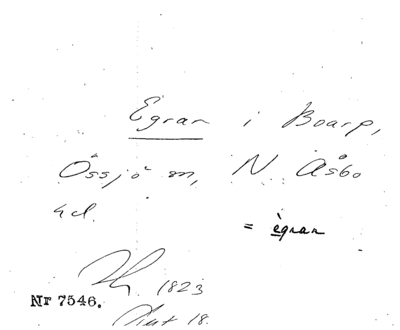 Egran i Boarp,
Össjö sn, N Åsbo
hd.
= ègran
1823
Nr 7546.
18.